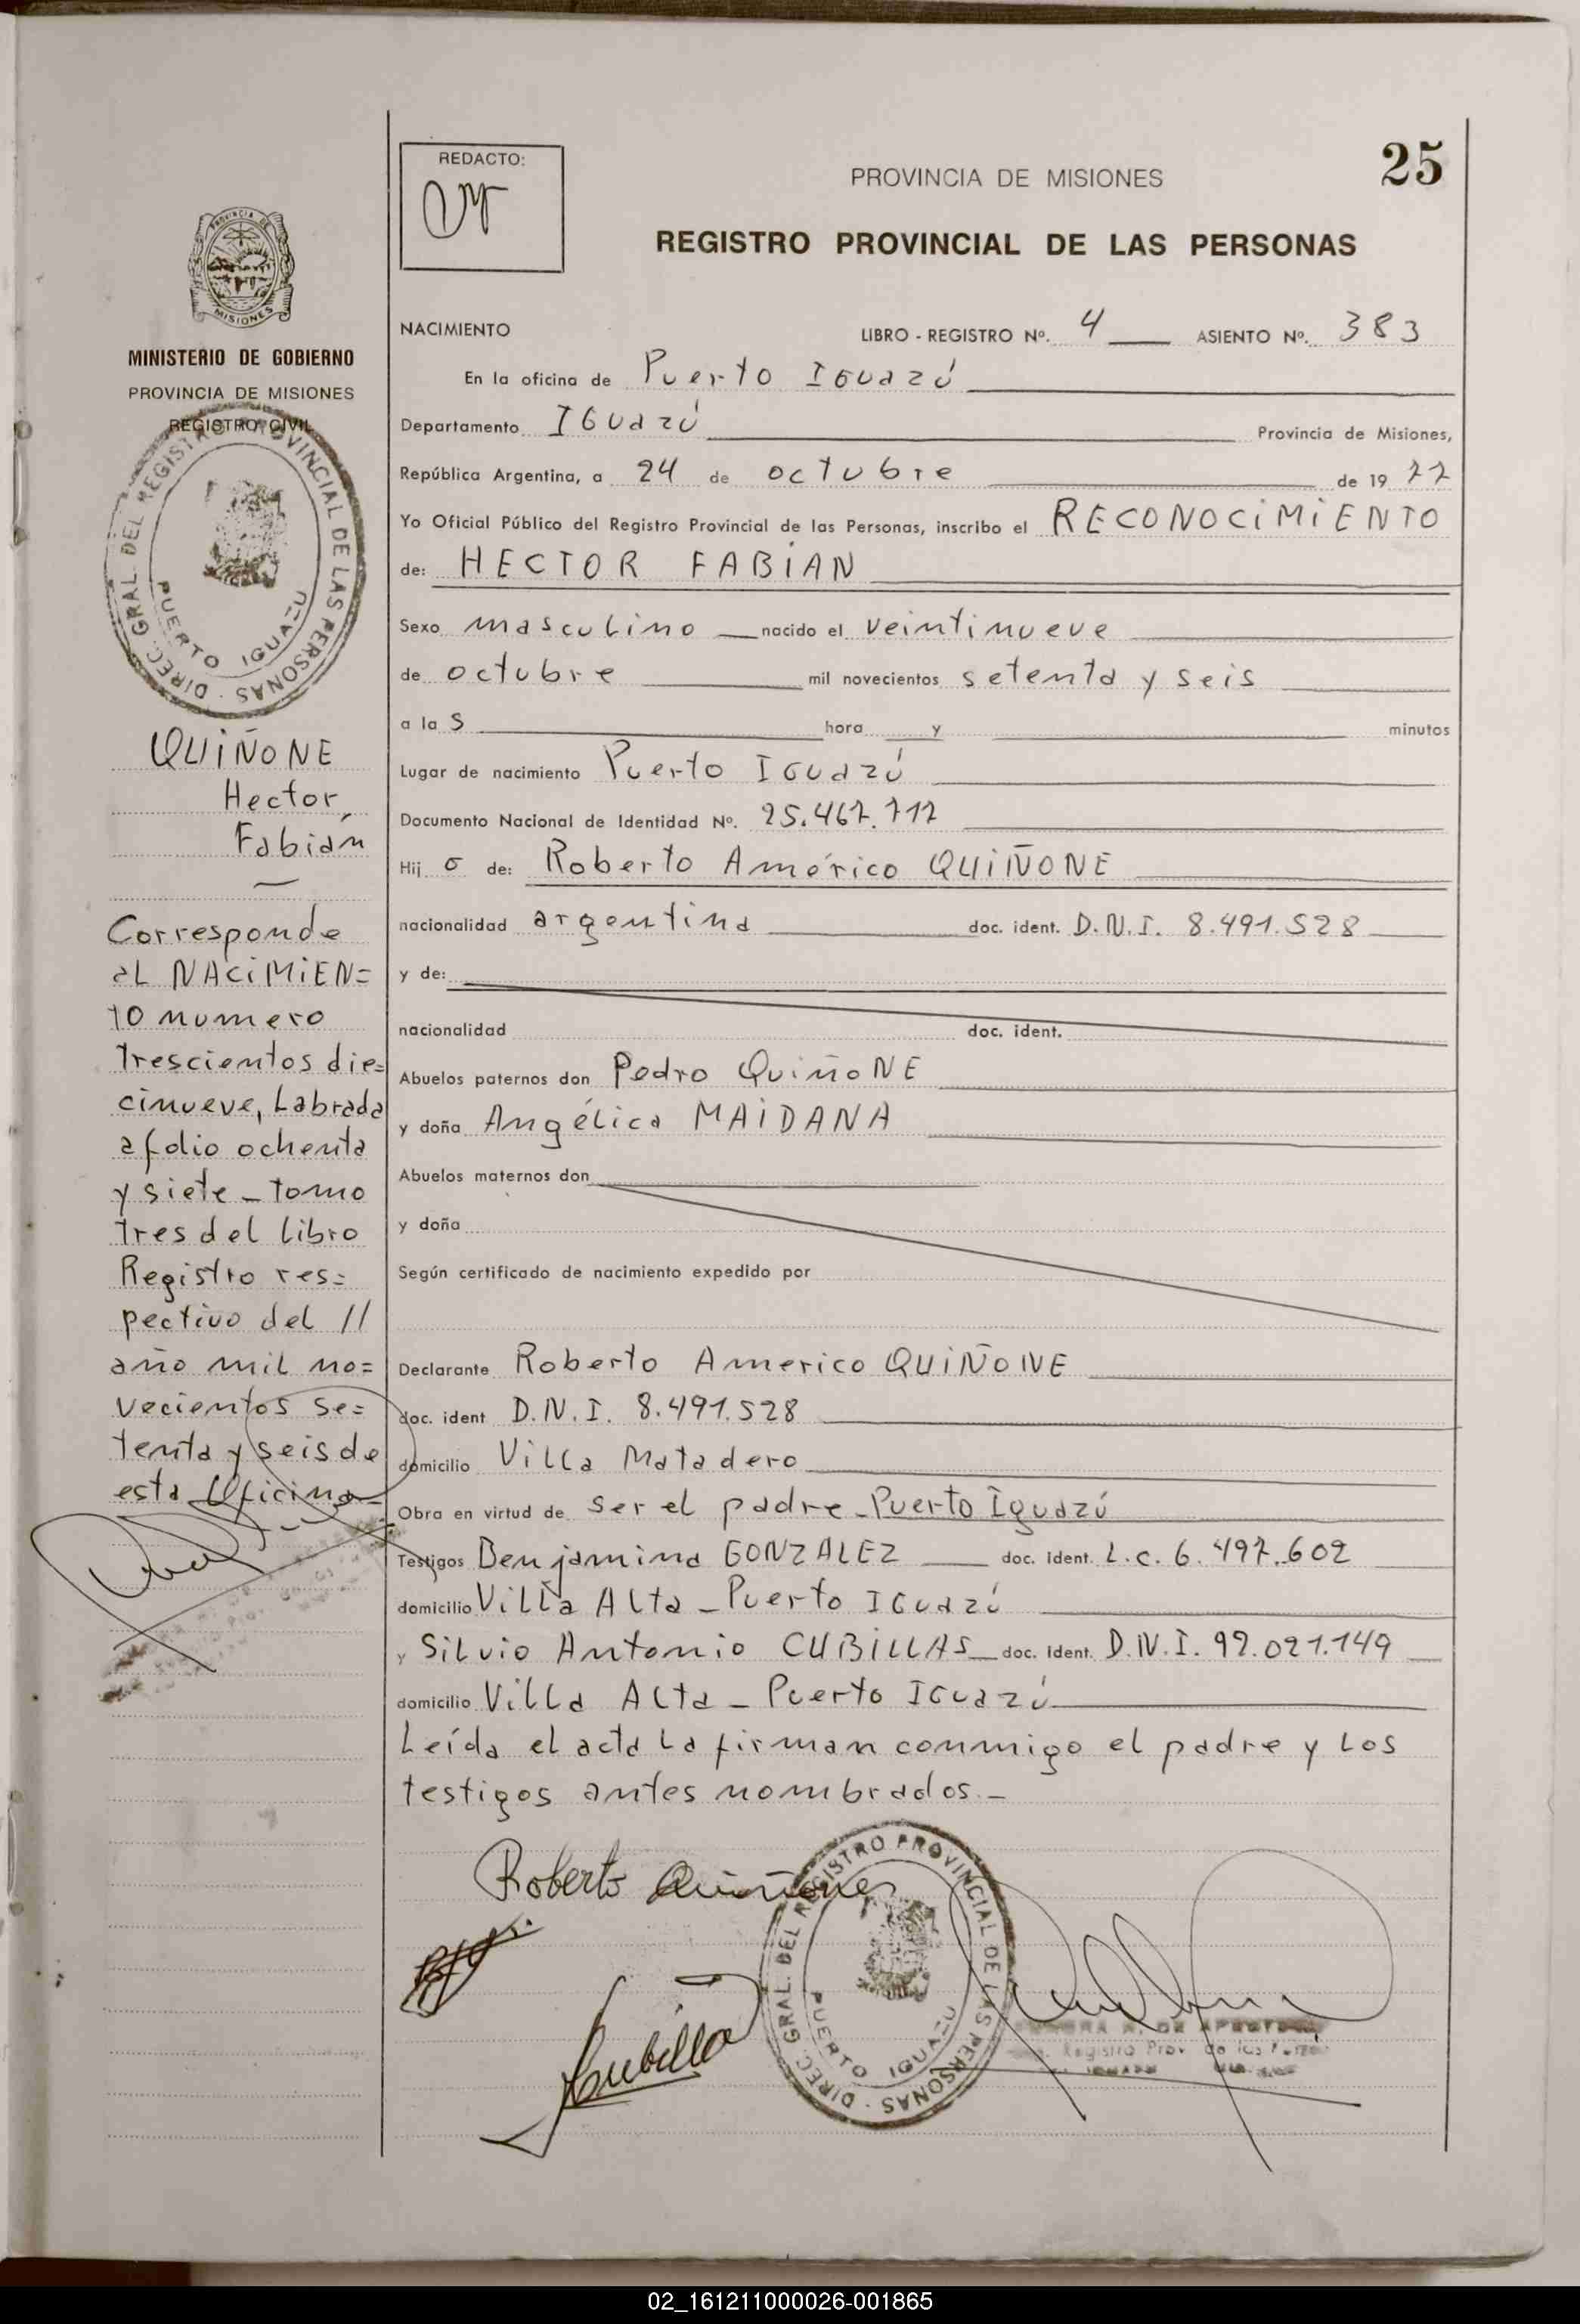 25
REDACTO:
PROVINCIA DE MISIONES
REGISTRO PROVINCIAL DE LAS PERSONAS
PROVINCIA DE
MISIONES
MINISTERIO DE GOBIERNO
PROVINCIA DE MISIONES
REGISTRO CIVIL
DIREC. GRAL. DEL REGISTRO PROVINCIAL DE LAS PERSONAS
PUERTO IGUAZU
QUIÑONE
Hector
Fabián
Corresponde
aL NACiMiEN=
TO numero
trescientos die=
cinueve, Labrada
a folio ochenta
y siete _ tomo
tres del libro
Registro res=
pectivo del //
año mil no=
vecientos se=
tenta y seis de
esta Oficina_
NACIMIENTO LIBRO - REGISTRO Nº. 4 ASIENTO Nº. 383
En la oficina de Puerto IGuazú
Departamento IGuazú Provincia de Misiones,
República Argentina, a 24 de octubre de 1977
Yo Oficial Público del Registro Provincial de las Personas, inscribo el RECONOCiMiENTO
de: HECTOR FABiAN
Sexo masculino nacido el veintinueve
de octubre mil novecientos setenta y seis
a la s hora y minutos
Lugar de nacimiento Puerto IGuazú
Documento Nacional de Identidad Nº. 25.467.717
Hij o de: Roberto Américo QUIÑONE
nacionalidad argentina doc. ident. D.N.I. 8.491.528
y de:
nacionalidad doc. ident.
Abuelos paternos don Pedro QuiñoNE
y doña Angélica MAiDANA
Abuelos maternos don
y doña
Según certificado de nacimiento expedido por
Declarante Roberto Americo QUIÑONE
doc. ident D.N.I. 8.491.528
domicilio Villa Matadero
Obra en virtud de ser el padre _ Puerto Iguazú
Testigos Benjamina GONZALEZ doc. Ident. L.C. 6.497.602
domicilio Villa Alta _ Puerto IGuazú
y Silvio Antonio CUBiLLAS doc. Ident. D.N.I. 92.021.149
domicilio Villa Alta _ Puerto IGuazú
Leída el acta La firman conmigo el padre y Los
testigos antes nombrados._
Roberto Quiñones
Cubilla
DIREC. GRAL. DEL REGISTRO PROVINCIAL DE LAS PERSONAS
PUERTO IGUAZU
Registro Prov. de las
02_161211000026-001865